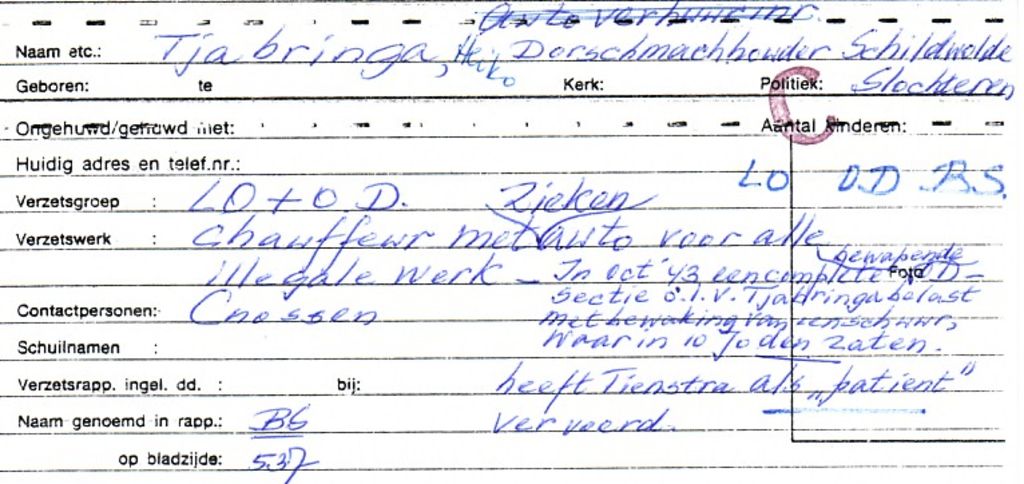 Autoverhuurder.
Naam etc.: Tjabringa, Heiko Dorschmachhouder Schildwolde
Geboren: te Kerk: Politiek: Slochteren
C
Ongehuwd/gehuwd met: Aantal kinderen:
Huidig adres en telef.nr.:
LO O.D. B.S.
Verzetsgroep : LO + O.D. Zieken
Verzetswerk : Chauffeur met auto voor alle
illegale werk - In oct '43 een complete bewapende O.D-
Foto
sectie o.l.v. Tjabringa belast
Contactpersonen: Cnossen
met bewaking van een schuur,
Schuilnamen :
waar in 10 Joden zaten.
Verzetsrapp. ingel. dd. : bij: heeft Tienstra als "patient"
Naam genoemd in rapp.: BG vervoerd.
op bladzijde: 537